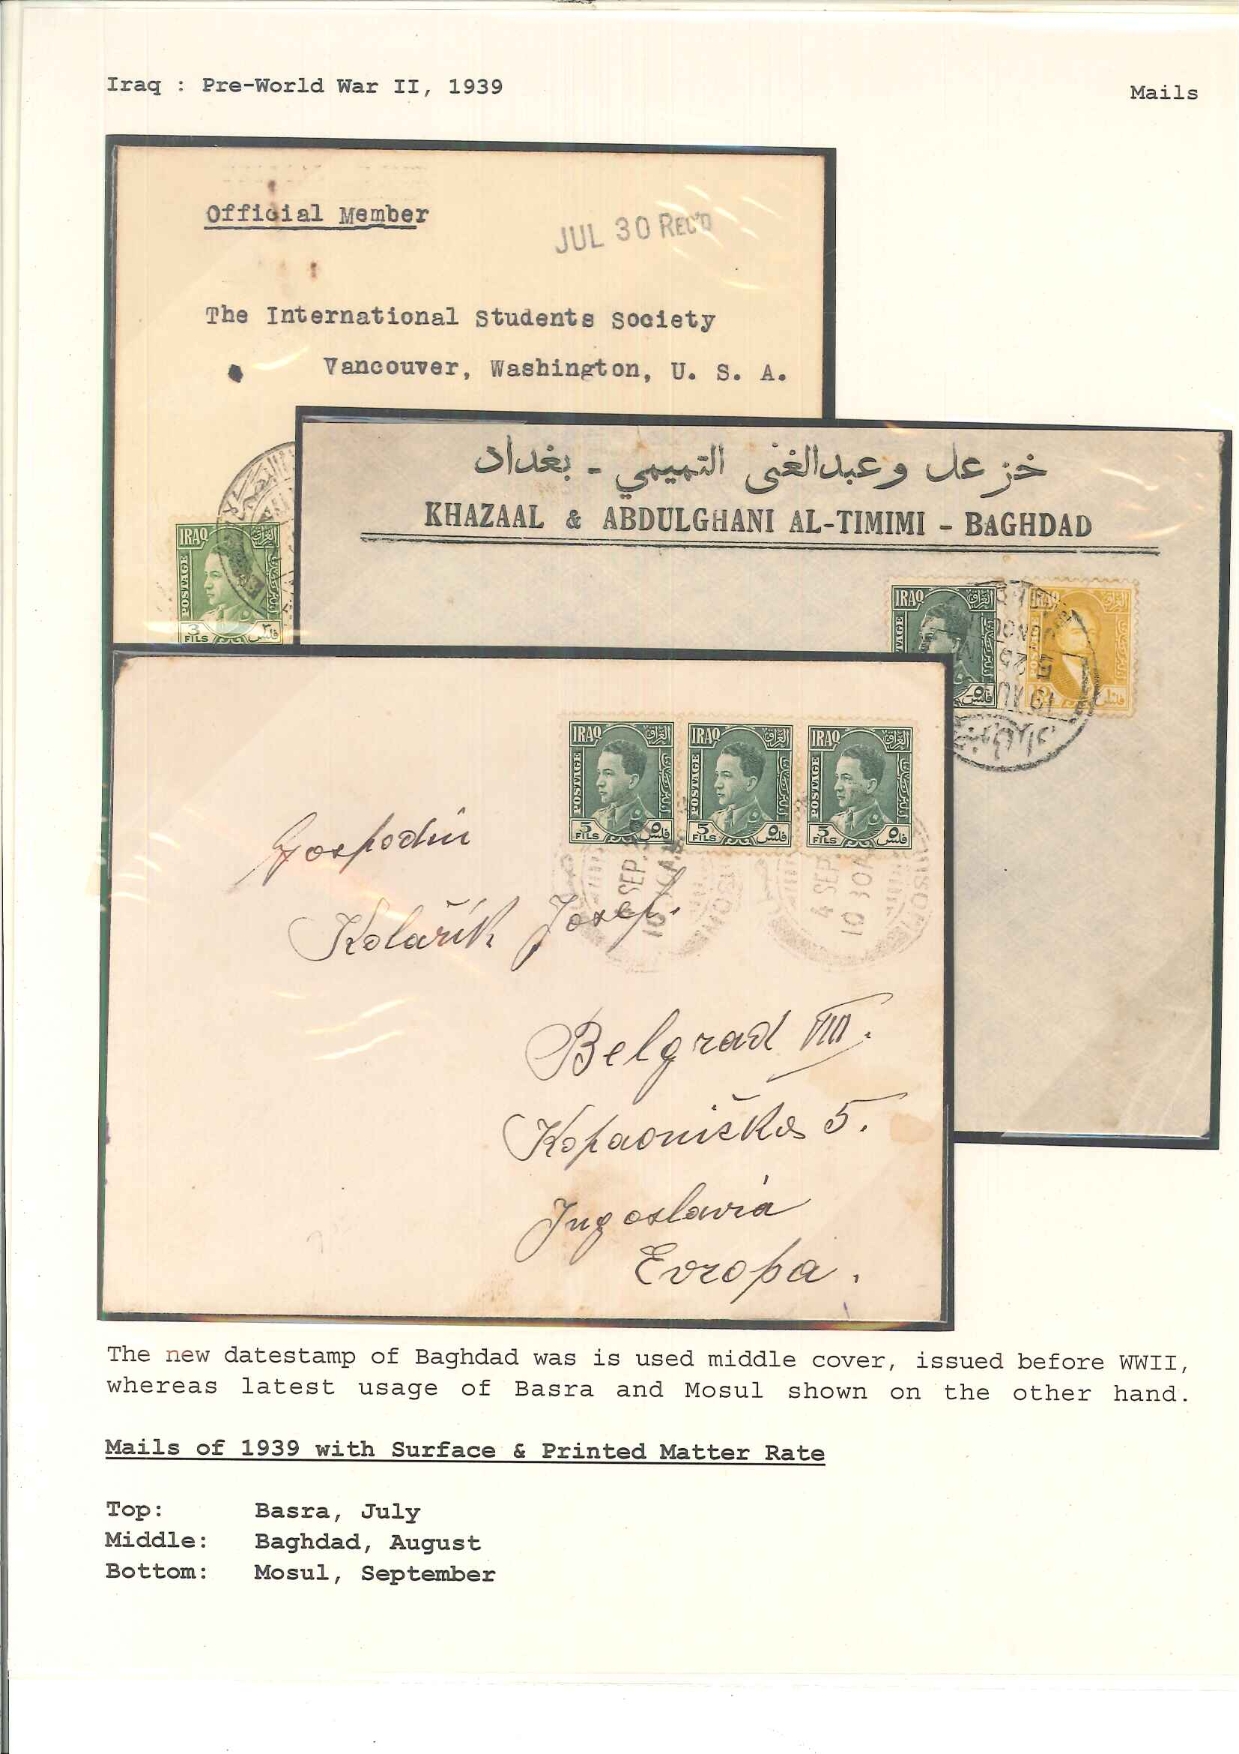 Iraq : Pre-World War II, 1939
Mails
Official Member
JUL 30 REC'D
The International Students Society
Vancouver, Washington, U. S. A.
IRAQ
POSTAGE
3
FILS
خزعل وعبدالغني التميمي - بغداد
KHAZAAL & ABDULGHANI AL-TIMIMI - BAGHDAD
IRAQ العراق
IRAQ العراق
25
19 AU
IRAQ العراق
POSTAGE
5 FILS ٥ فلس
IRAQ العراق
POSTAGE
5 FILS ٥ فلس
IRAQ العراق
POSTAGE
5 FILS ٥ فلس
SEP.
10
MOSUL
4 SEP.
10 30A
MOSUL
Gospodin
Kolařik Josef.
Belgrad VIII.
Kopaonička 5.
Jugoslavia
Evropa.
The new datestamp of Baghdad was is used middle cover, issued before WWII,
whereas latest usage of Basra and Mosul shown on the other hand.
Mails of 1939 with Surface & Printed Matter Rate
Top: Basra, July
Middle: Baghdad, August
Bottom: Mosul, September